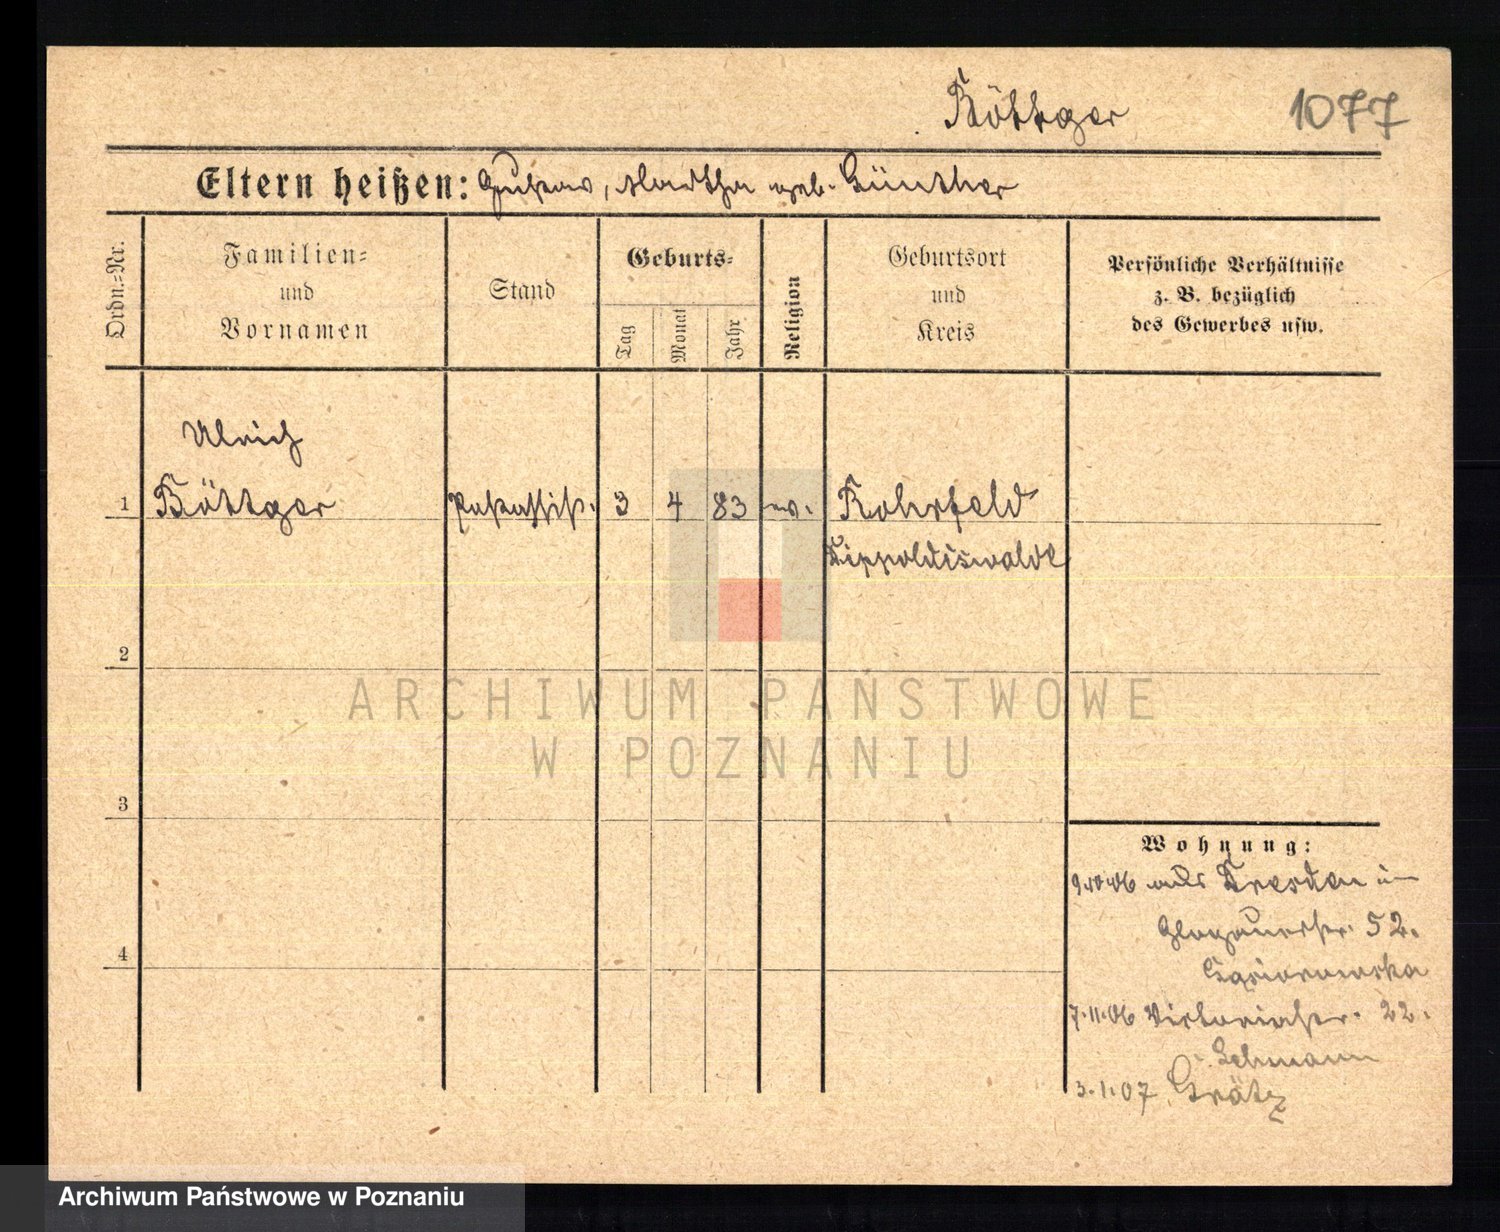 Böttger 1077
Eltern heißen: Gustav, Martha geb. Günther
Ordn.=Nr.
Familien=
und
Vornamen
Stand
Geburts=
Tag
Monat
Jahr
Religion
Geburtsort
und
Kreis
Persönliche Verhältnisse
z. B. bezüglich
des Gewerbes usw.
Ulrich
1 Böttger 3 4 83 ev.
Dippoldiswalde
2
ARCHIWUM PAŃSTWOWE
W POZNANIU
3
4
Wohnung:
9.10.06 aus Dresden
Glogauerstr. 52.
Gąsiorowska
7.11.06 Viktoriastr. 22.
Lehmann
3.1.07 Grätz
Archiwum Państwowe w Poznaniu